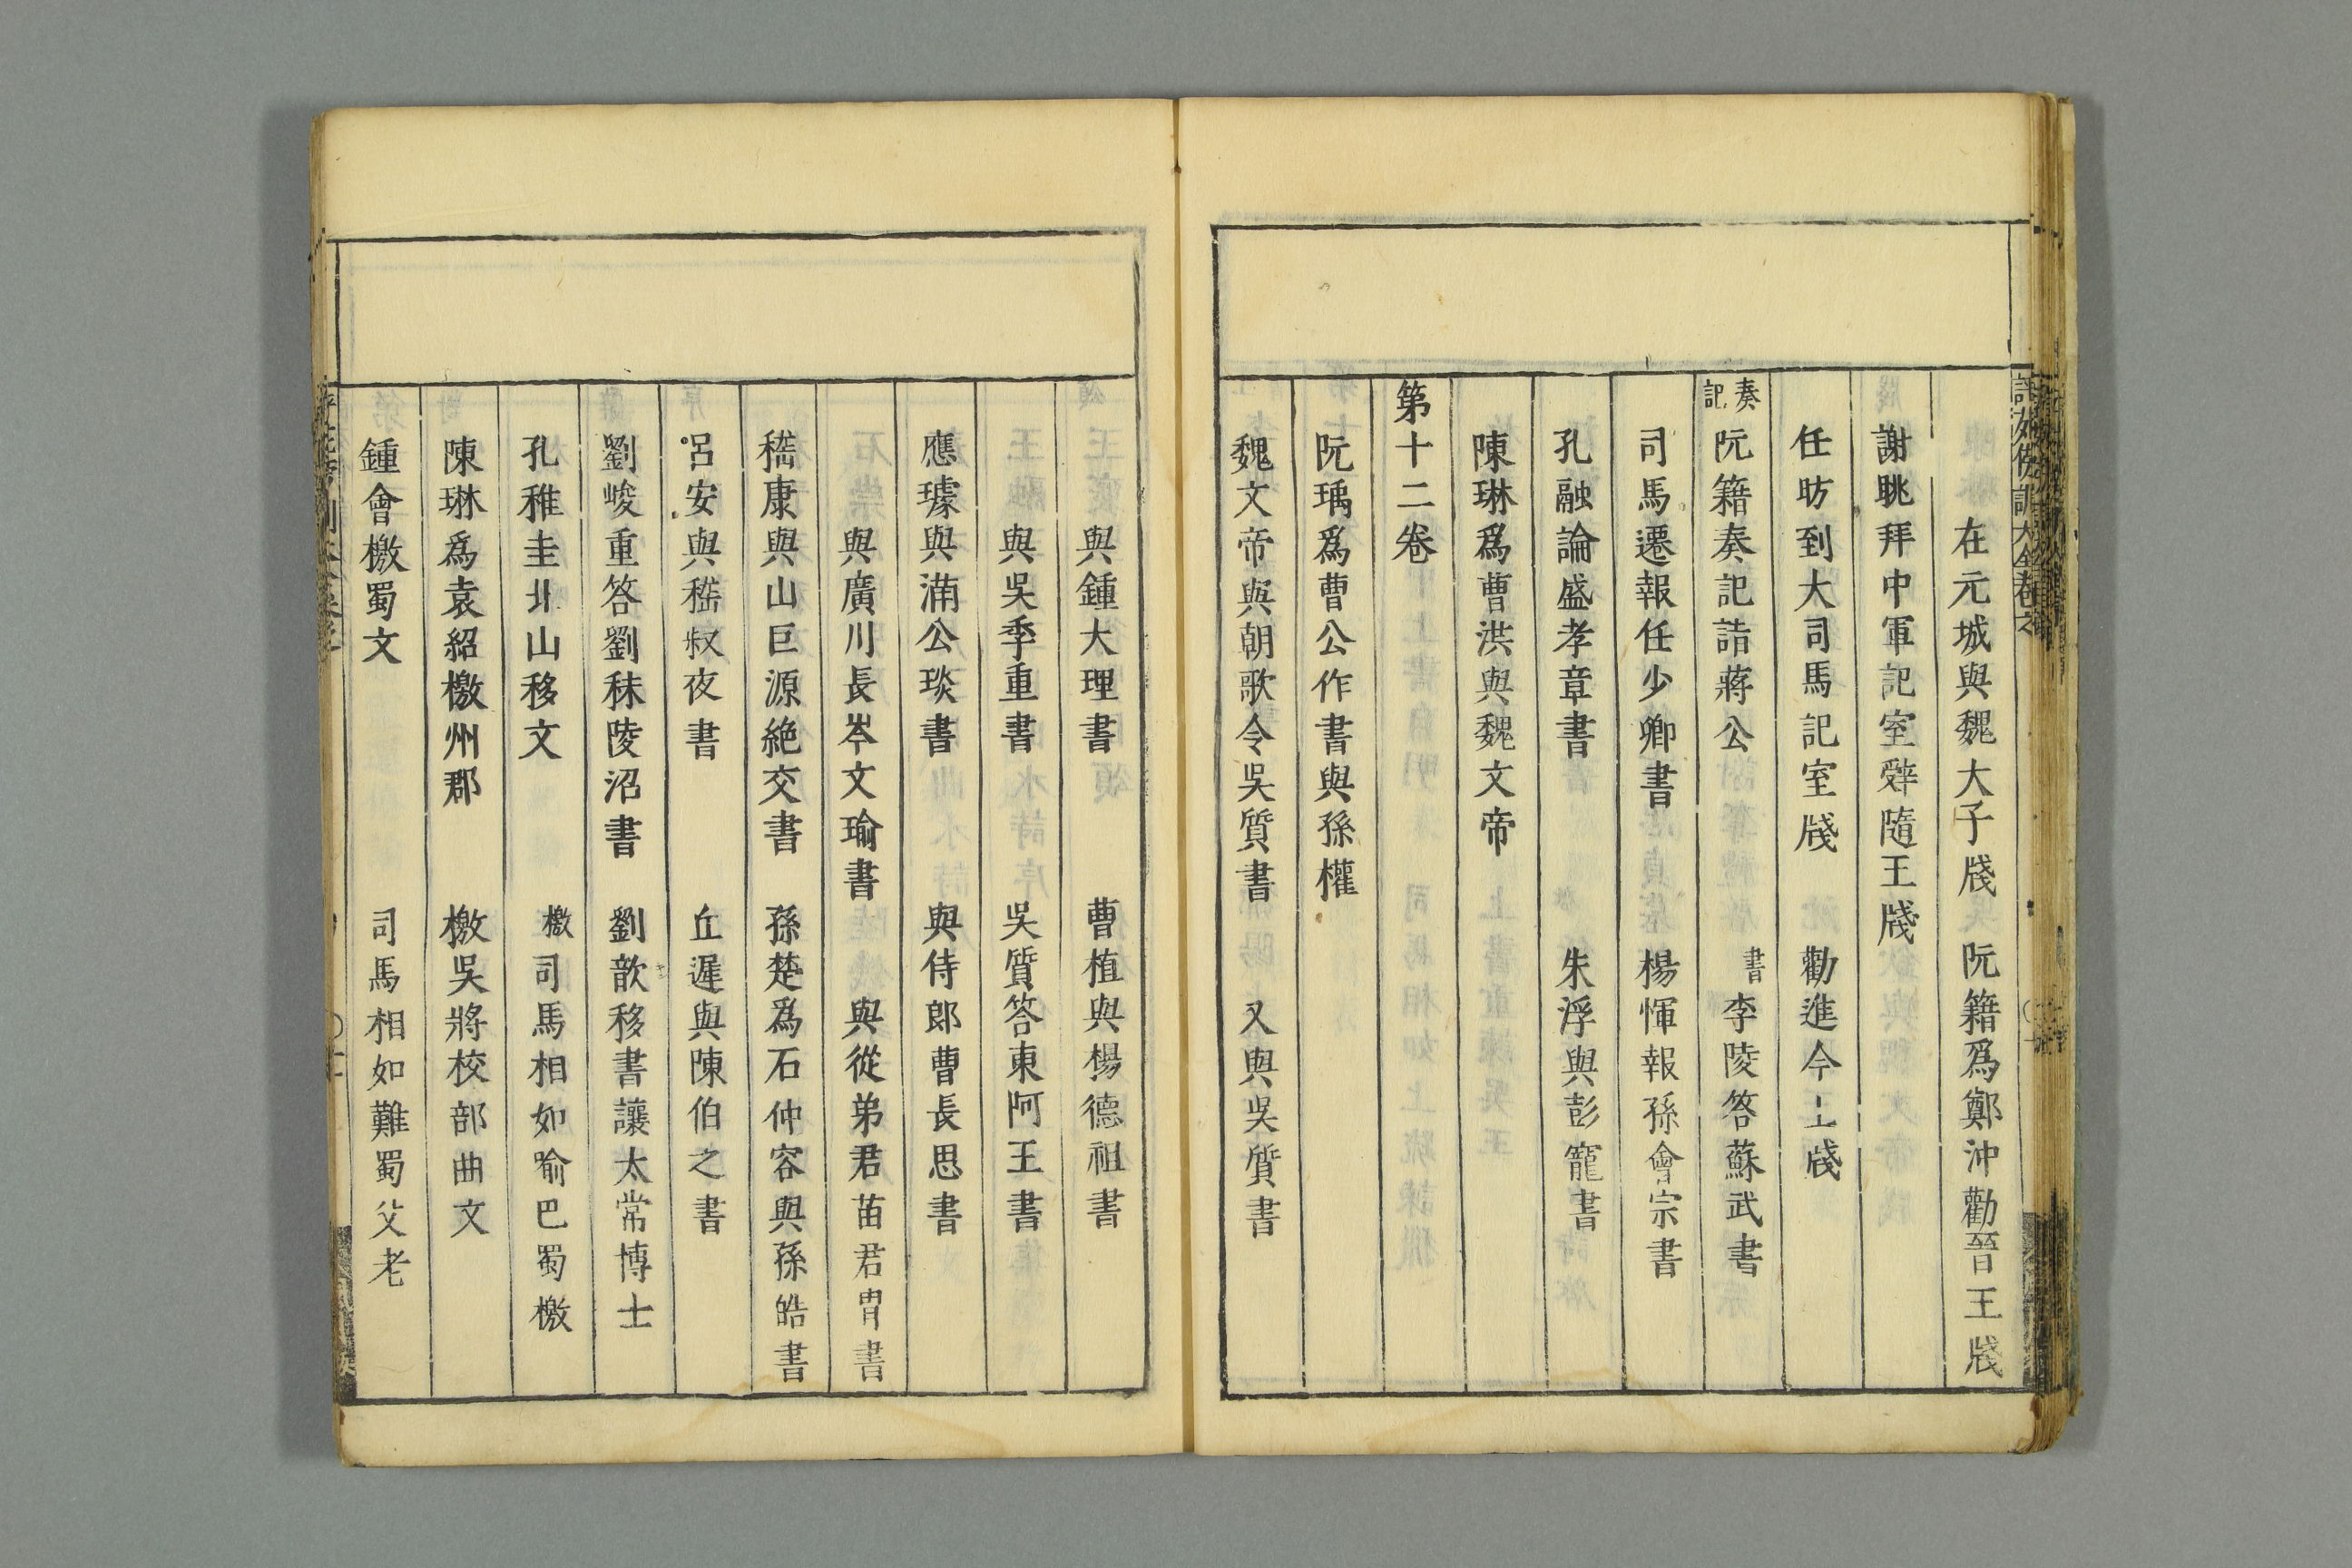 在元城與魏大子牋　阮籍爲鄭沖勸晉王牋
謝眺拜中軍記室辤隨王牋
任昉到大司馬記室牋　勸進今上牋
奏記　阮籍奏記詣蔣公　書　李陵答蘇武書
司馬遷報任少卿書　楊惲報孫會宗書
孔融論盛孝章書　朱浮與彭寵書
陳琳爲曹洪與魏文帝
第十二卷
阮瑀爲曹公作書與孫權
魏文帝與朝歌令吳質書　又與吳質書
與鍾大理書　曹植與楊德祖書
與吳季重書　吳質答東阿王書
應璩與滿公琰書　與侍郎曹長思書
與廣川長岑文瑜書　與從弟君苗君冑書
嵇康與山巨源絶交書　孫楚爲石仲容與孫皓書
呂安與嵇叔夜書　丘遲與陳伯之書
劉峻重答劉秣陵沼書　劉歆移書讓太常博士
孔稚圭北山移文　檄　司馬相如喻巴蜀檄
陳琳爲袁紹檄州郡　檄吳將校部曲文
鍾會檄蜀文　司馬相如難蜀父老